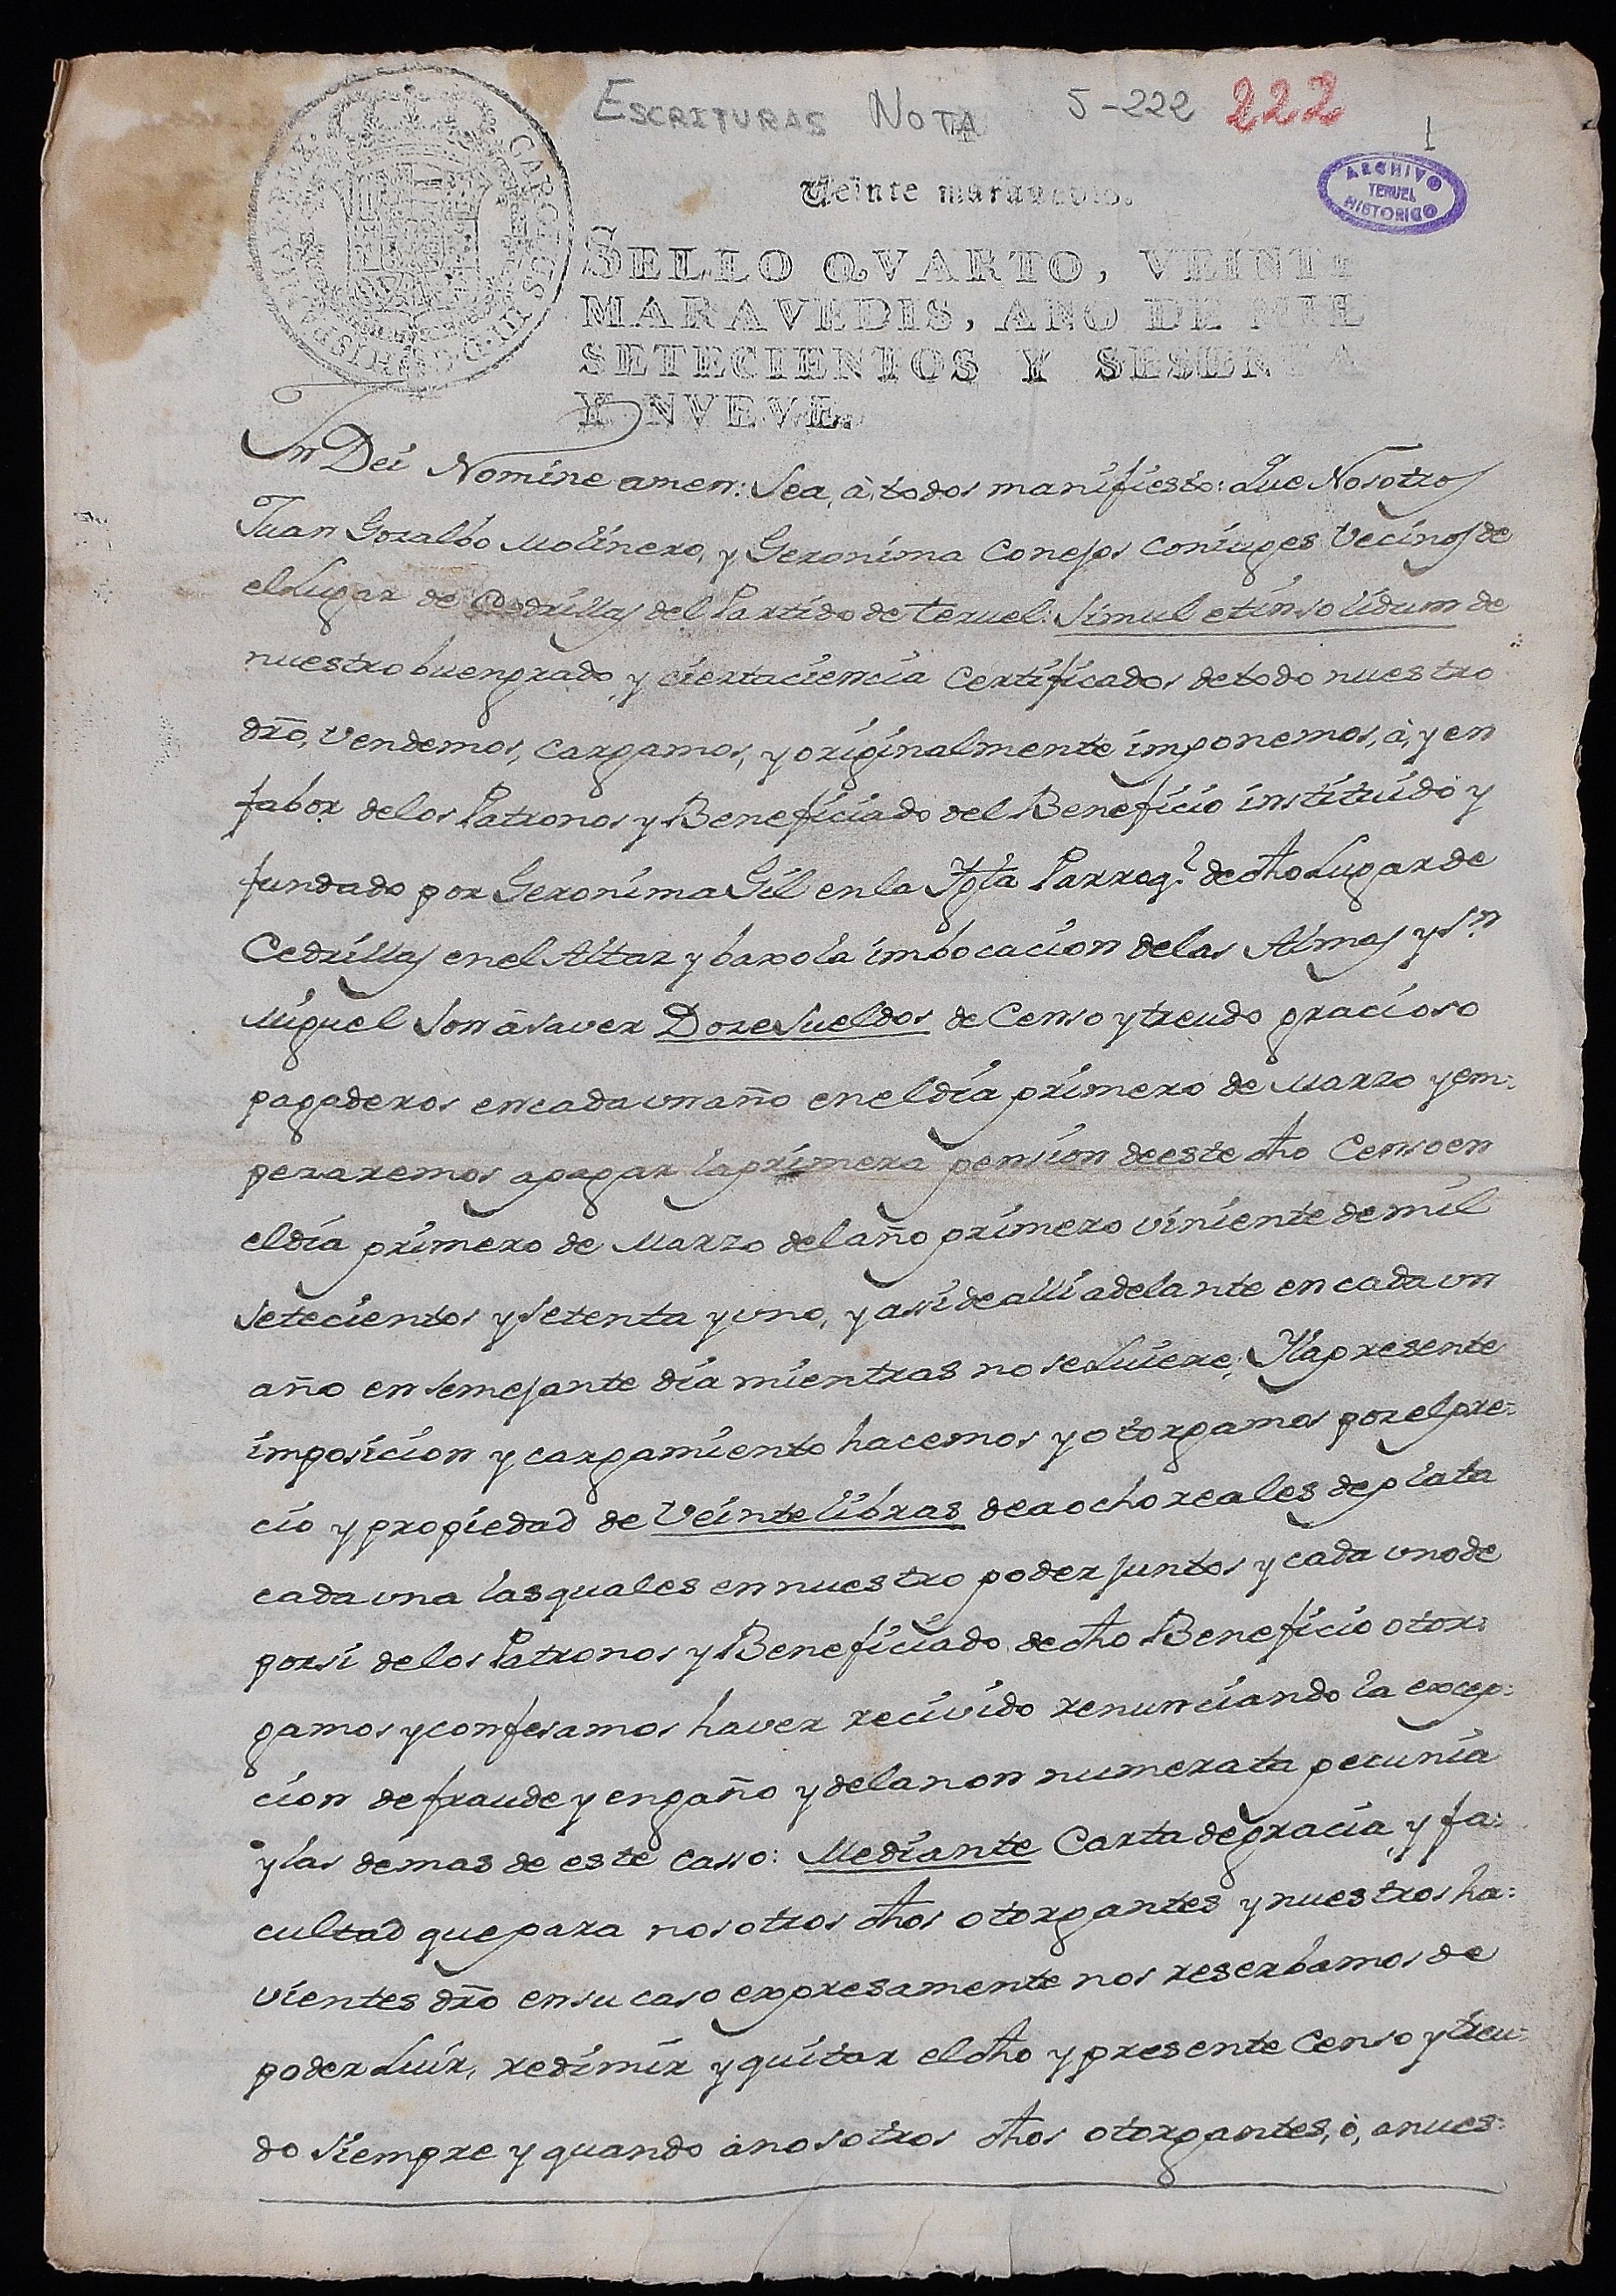 ESCRITURAS NOTA 5-222 222
1
ARCHIVO
TERUEL
HISTORICO
CAROLUS III D G HISPANIAR REX
Veinte maravedis.
SELLO QVARTO, VEINTE
MARAVEDIS, AÑO DE MIL
SETECIENTOS Y SESENTA
Y NVEVE.
In Dei Nomine amen: Sea, à, todos manifiesto: Que Nosotros
Juan Goralbo Molinero, y Geronima Conejos Coniuges Vecinos de
el Lugar de Cedrillas del Partido de Teruel: Simul et in solidum de
nuestro buen grado, y cierta ciencia Certificados de todo nuestro
dr̃o, Vendemos, Cargamos, y originalmente imponemos, à, y en
fabor de los Patronos y Beneficiado del Beneficio instituido y
fundado por Geronima Gil en la Ygla Parroql de dho Lugar de
Cedrillas en el Altar y baxo la imbocacion de las Almas y Sn
Miguel Son à saver Doze Sueldos de Censo y treudo gracioso
pagaderos en cada un año en el dia primero de Marzo y em:
pezaremos a pagar la primera pension de este dho Censo en
el dia primero de Marzo del año primero viniente de mil
setecientos y setenta y uno, y assi de alli adelante en cada un
año en semejante dia mientras no se Luiere; Y la presente
imposicion y cargamiento hacemos y otorgamos por el pre:
cio y propiedad de Veinte libras de a ocho reales de plata
cada una las quales en nuestro poder juntos y cada uno de
por si de los Patronos y Beneficiado de dho Beneficio otor:
gamos y confesamos haver recivido renunciando la excep:
cion de fraude y engaño y de la non numerata pecunia
y las demas de este casso: Mediante Carta de gracia, y fa:
cultad que para nosotros dhos otorgantes y nuestros ha:
vientes dr̃o en su caso expresamente nos reserbamos de
poder Luir, redimir y quitar el dho y presente Censo y treu:
do siempre y quando a nosotros dhos otorgantes, ò, a nues: